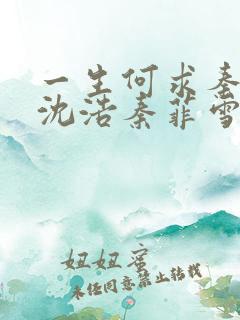 一生何求秦
沈浩秦菲雪
妞妞蜜
未经同意禁止转载